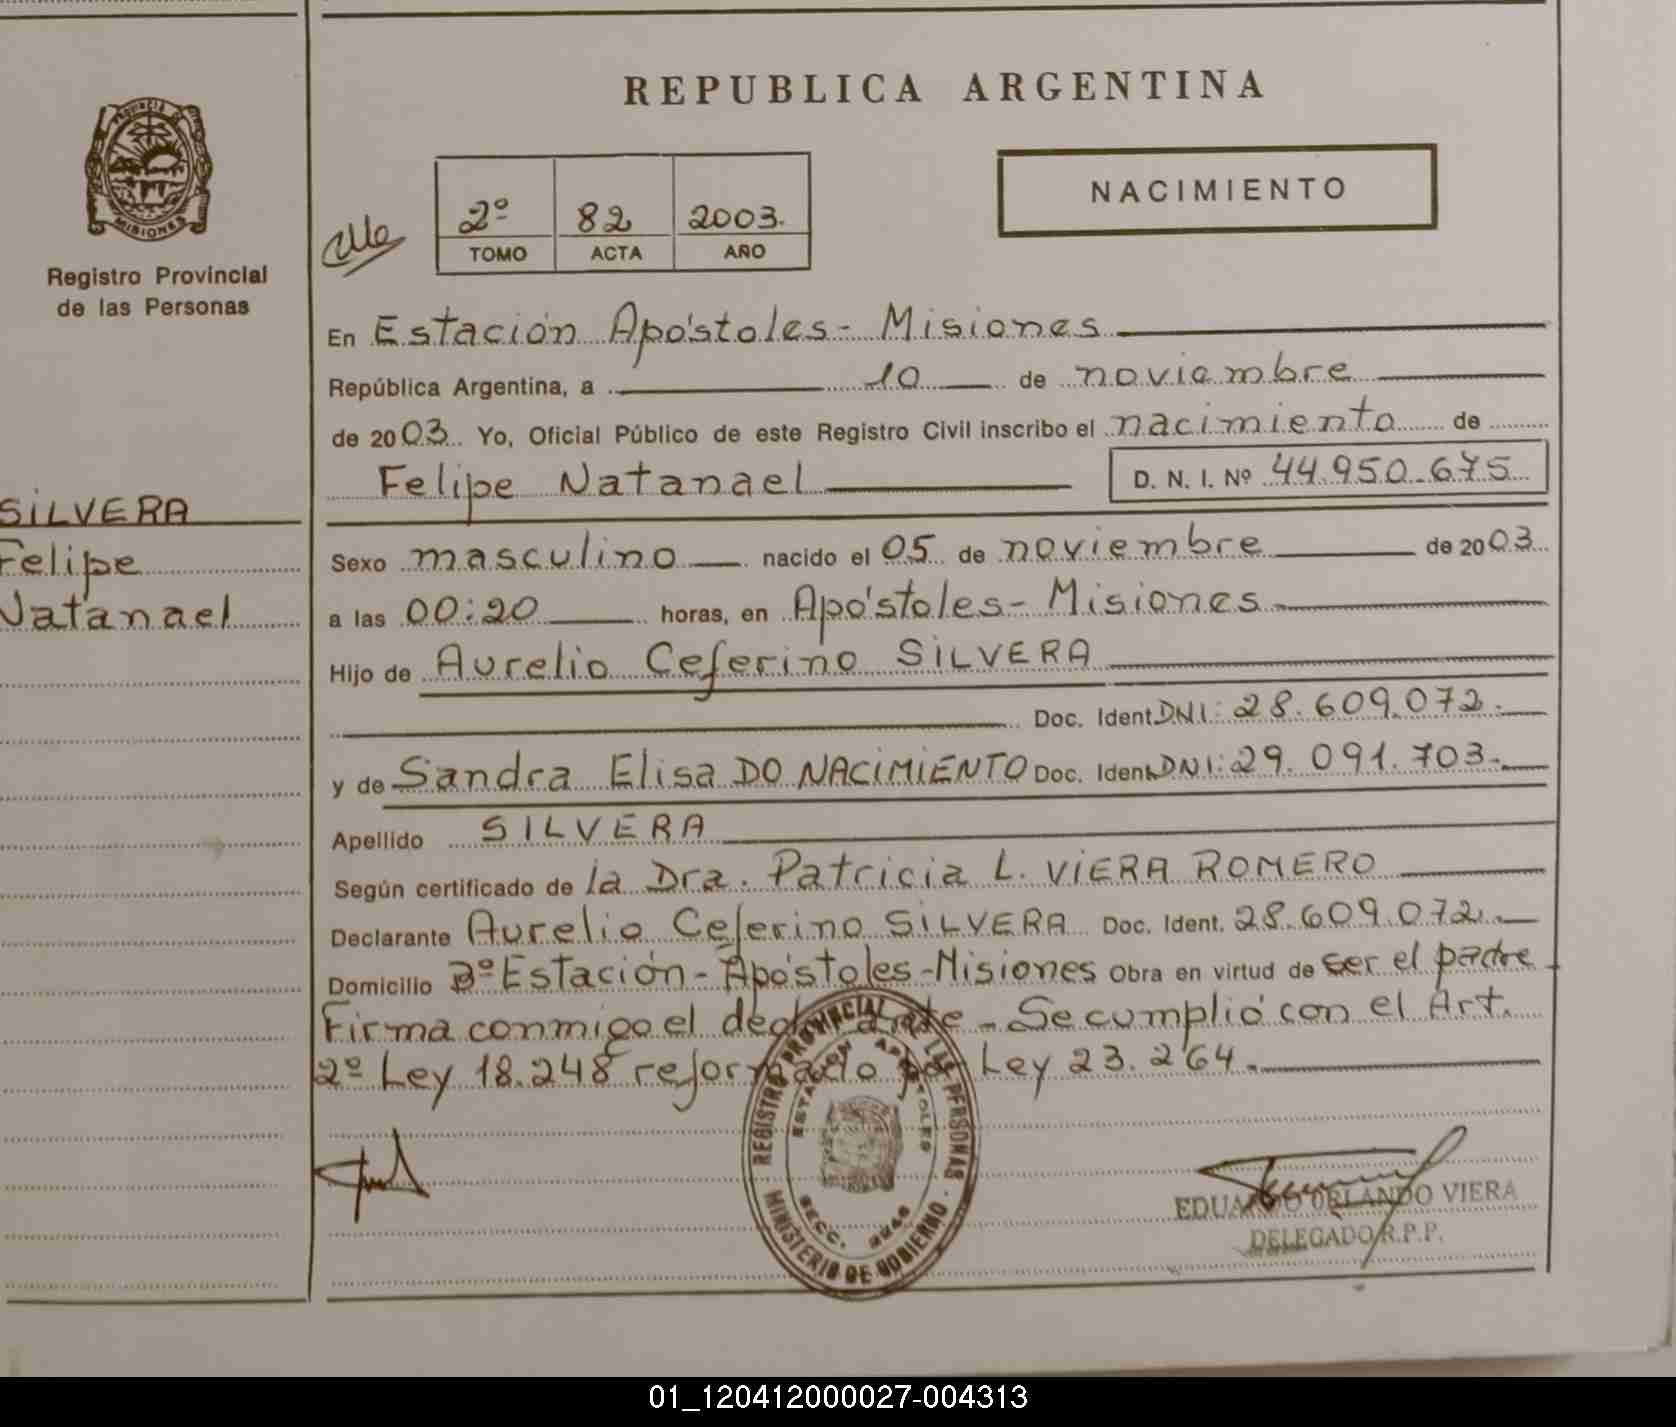 REPUBLICA ARGENTINA
PROVINCIA DE
MISIONES
Registro Provincial
de las Personas
NACIMIENTO
2º 82 2003.
TOMO ACTA AÑO
En Estación Apóstoles - Misiones
República Argentina, a 10 de noviembre
de 2003. Yo, Oficial Público de este Registro Civil inscribo el nacimiento de
Felipe Natanael D. N. I. Nº 44.950.675
SILVERA
Felipe
Natanael
Sexo masculino nacido el 05 de noviembre de 2003
a las 00:20 horas, en Apóstoles - Misiones
Hijo de Aurelio Ceferino SILVERA
Doc. Ident. DNI: 28.609.072.
y de Sandra Elisa DO NACIMIENTO Doc. Ident. DNI: 29.091.703.
Apellido SILVERA
Según certificado de la Dra. Patricia L. VIERA ROMERO
Declarante Aurelio Ceferino SILVERA Doc. Ident. 28.609.072.
Domicilio Bº Estación - Apóstoles - Misiones Obra en virtud de ser el padre
Firma conmigo el declarante - Se cumplió con el Art.
2º Ley 18.248 reformado por Ley 23.264.
REGISTRO PROVINCIAL DE LAS PERSONAS
ESTACION APOSTOLES
SECC.
MINISTERIO DE GOBIERNO
EDUARDO ORLANDO VIERA
DELEGADO R.P.P.
01_120412000027-004313